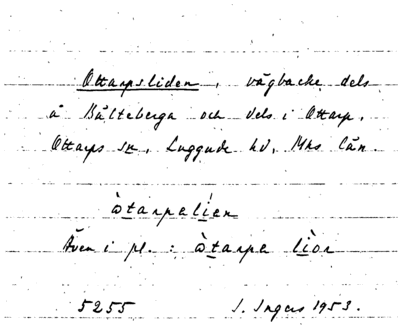 Ottarpsliden, vägbacke dels
å Bälteberga och dels i Ottarp,
Ottarps sn, Luggude hd, Mhs län.
ὼtarpəlíən
Även i pl.: ὼtarpə lìər
5255 I. Ingers 1953.